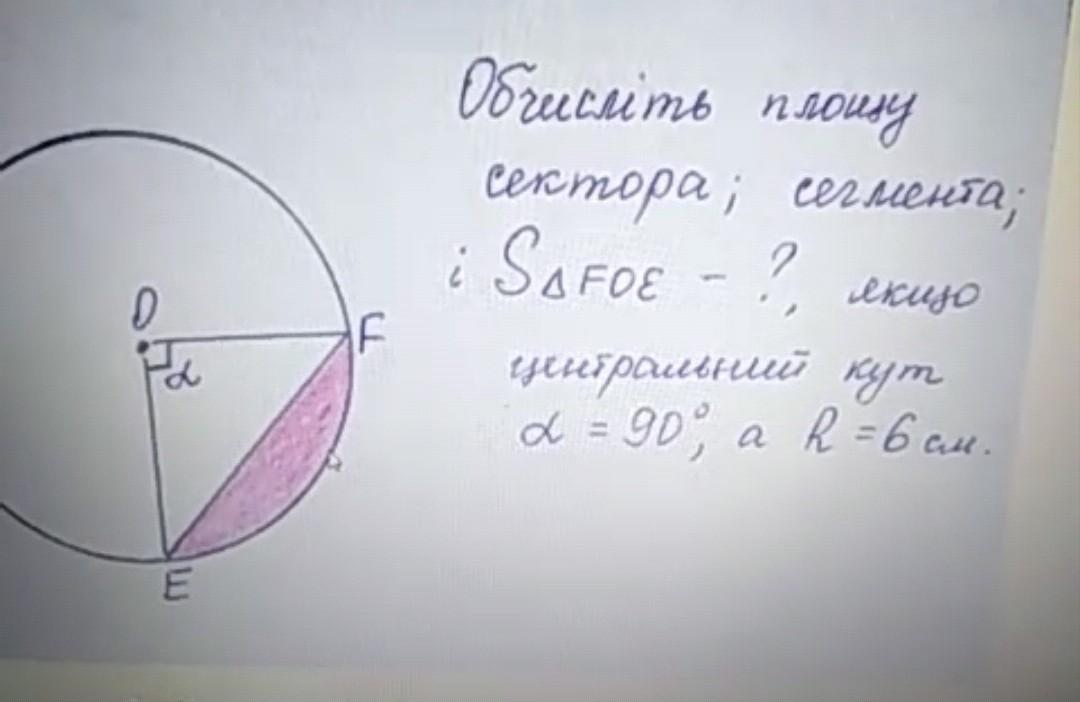 Обчисліть площу
сектора; сегмента;
і S△FOE - ?, якщо
центральний кут
α = 90°, а R = 6 см.
O
F
α
E